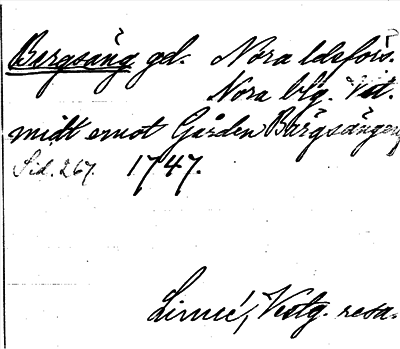 Bergsäng gd. Nora ldsförs.
Nora blg. Vst.
midt emot Gården Bärgsängen
Sid. 267. 1747.
Linné, Vestg. resa.